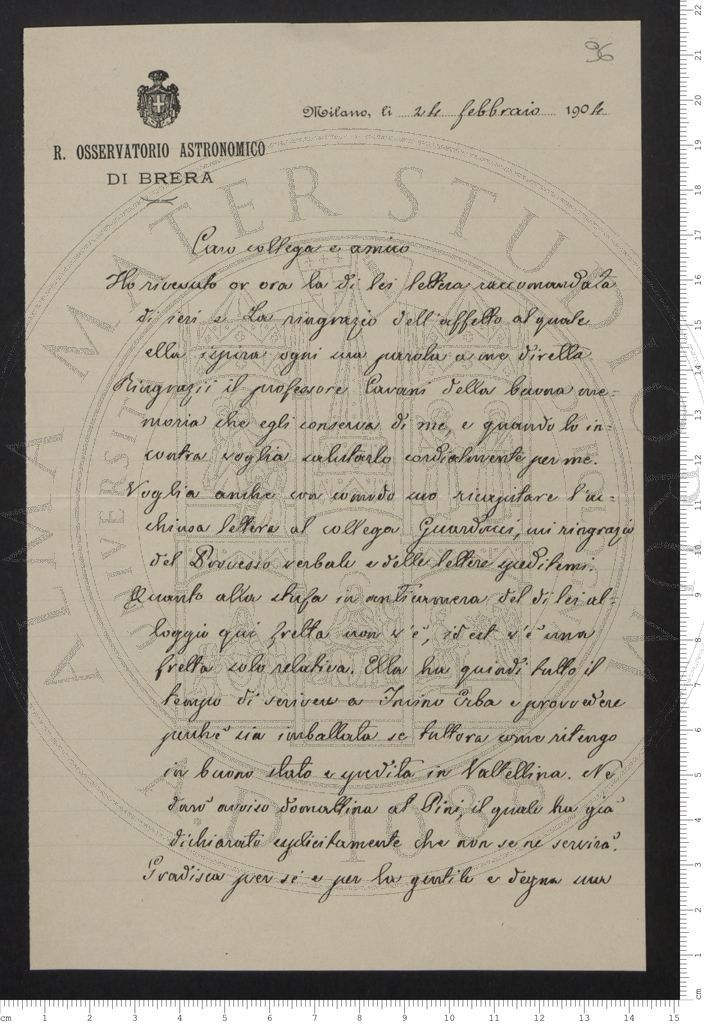 96
Milano, li 24 febbraio 1904
R. OSSERVATORIO ASTRONOMICO
DI BRERA
Caro collega e amico
Ho ricevuto or ora la di lei lettera raccomandata
di ieri e La ringrazio dell'affetto al quale
ella ispira ogni sua parola a me diretta
Ringrazii il professore Cavani della buona me=
moria che egli conserva di me, e quando lo in=
contra voglia salutarlo cordialmente per me.
Voglia anche con comodo suo ricapitare l'ac=
chiusa lettera al collega Guarducci, mi ringrazio
del Processo verbale e delle lettere speditemi.
Quanto alla stufa in anticamera del di lei al=
loggio qui fretta non v'è, id est v'è una
fretta solo relativa. Ella ha quindi tutto il
tempo di scrivere a Incino Erba e provvedere
perchè sia imballata se tuttora come ritengo
in buono stato e spedita in Valtellina. Ne
darò avviso domattina al Pini, il quale ha già
dichiarato esplicitamente che non se ne servirà.
Gradisca per sè e per la gentile e degna sua
ALMA MATER STUDIORUM
A.D. 1088